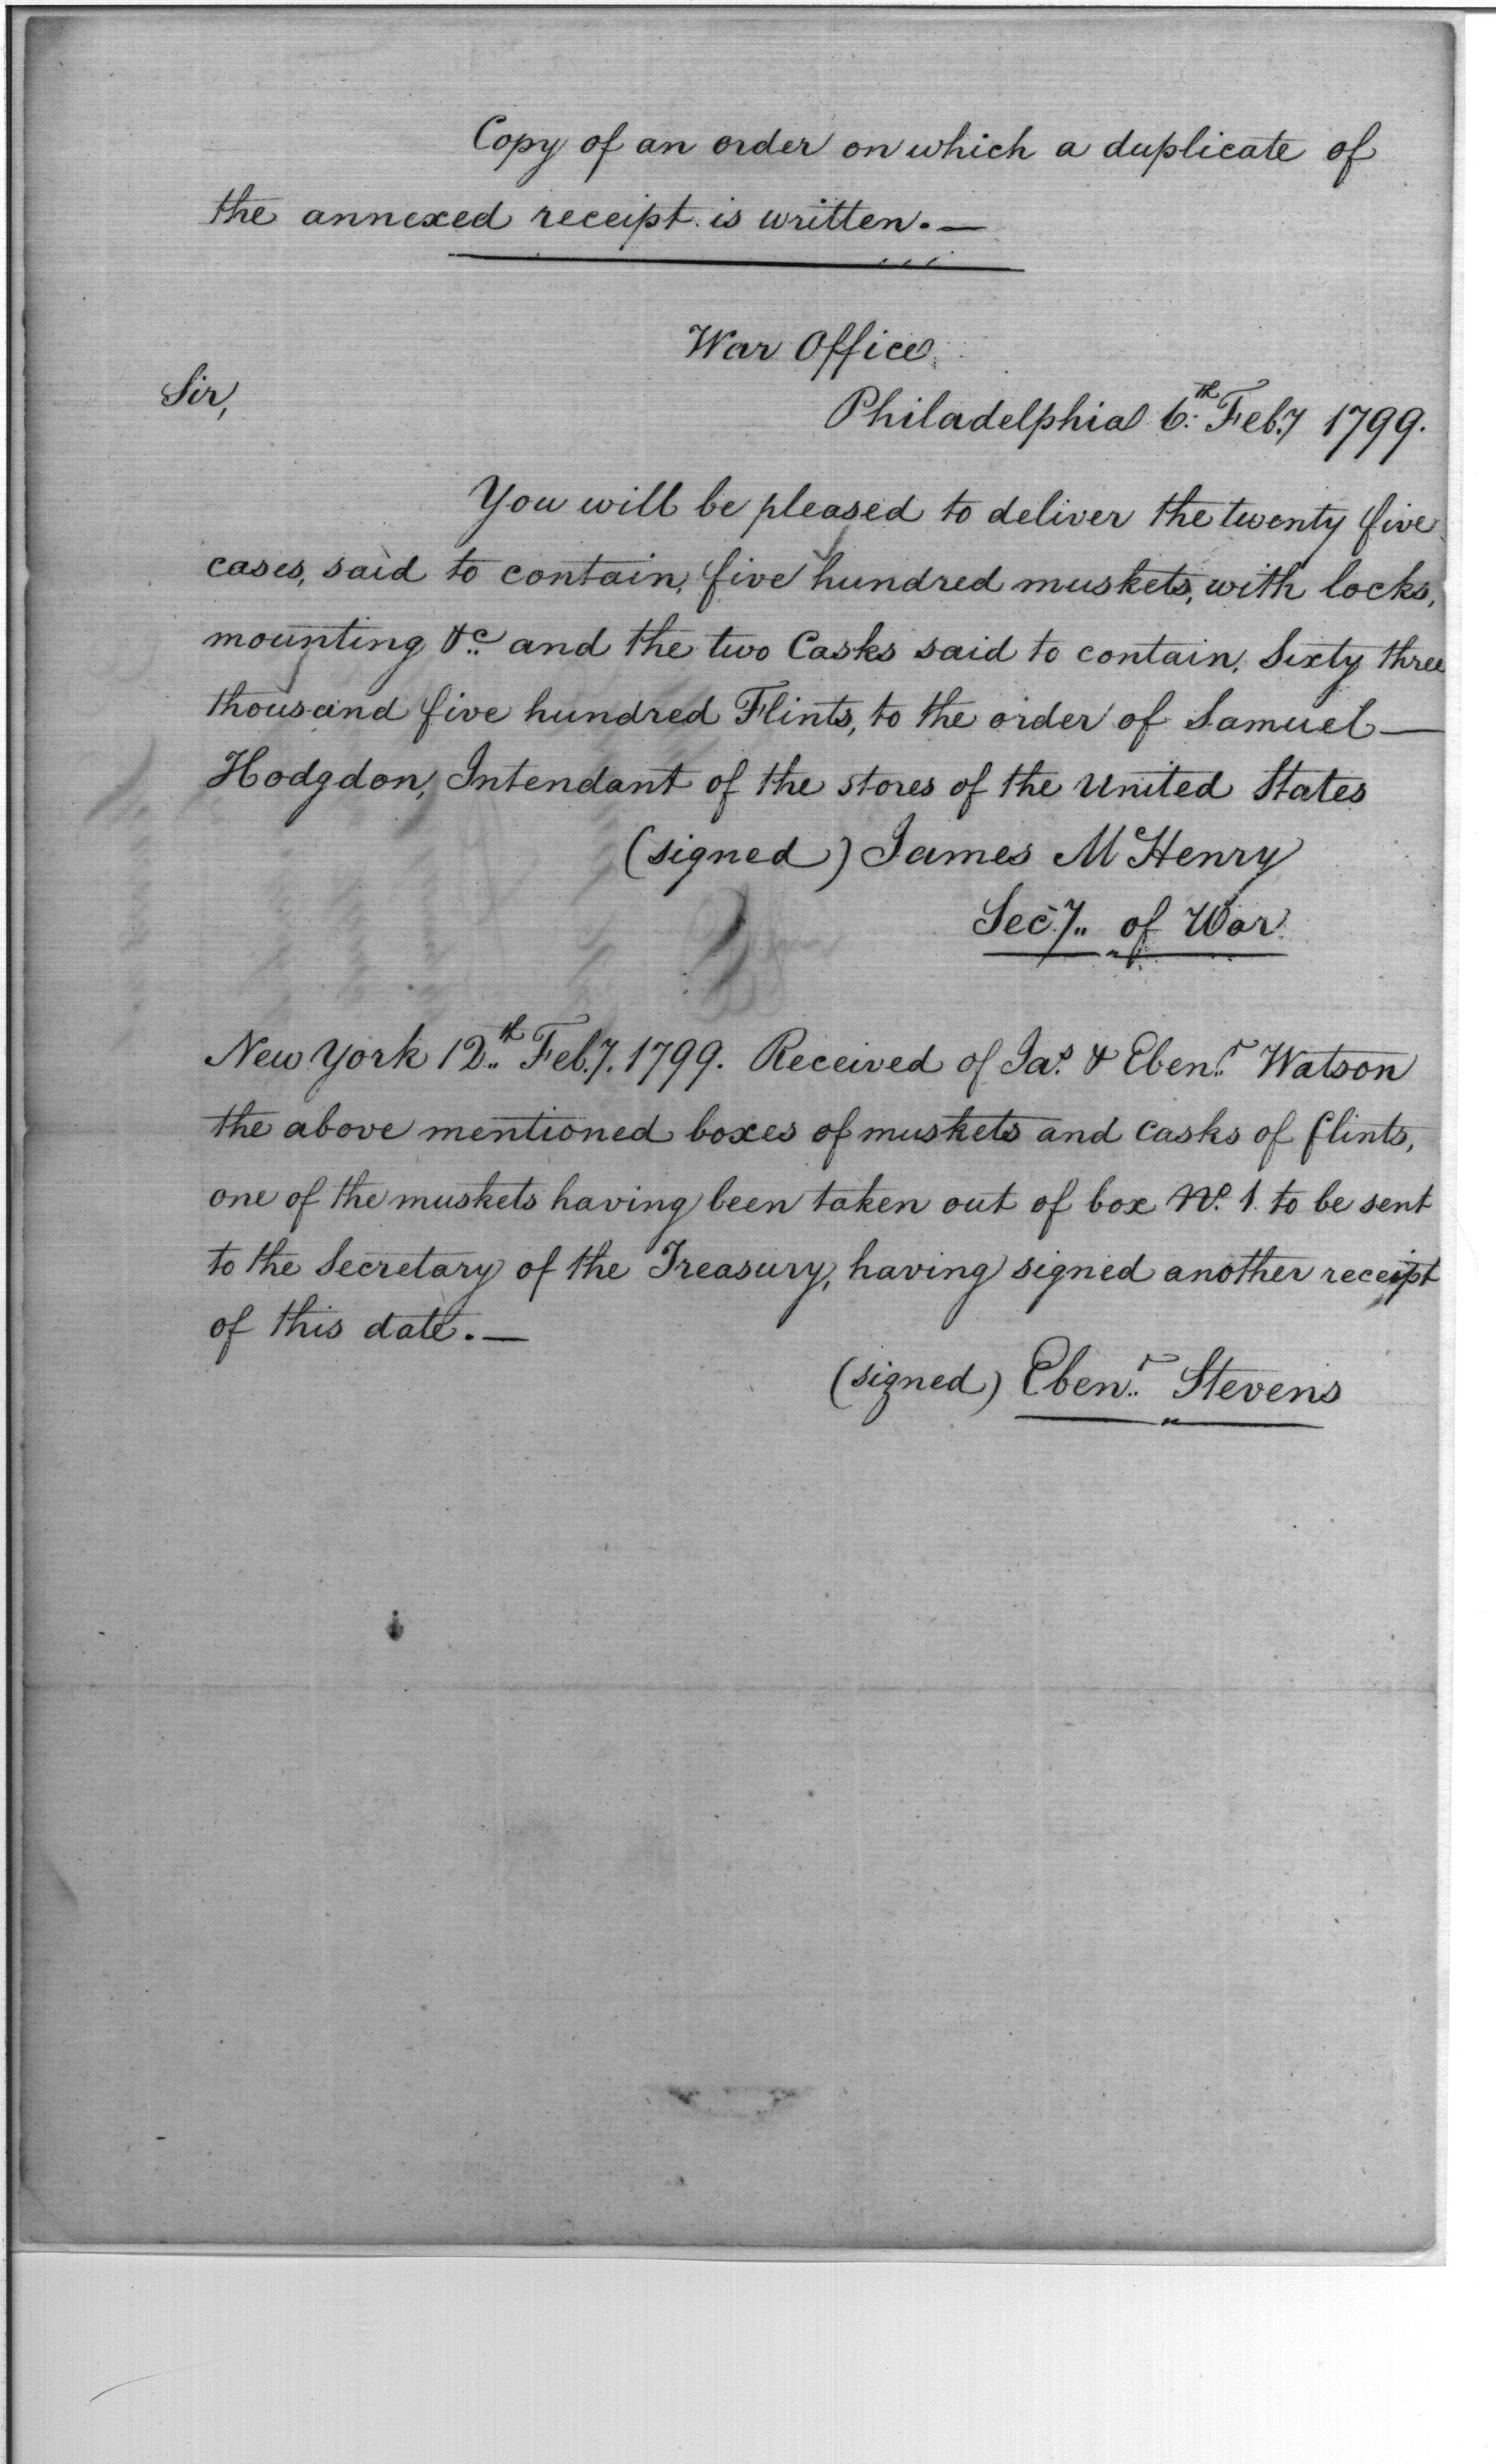 Copy of an order on which a duplicate of
the annexed receipt is written.—
War Office
Sir,
Philadelphia 6th Feby 1799.
You will be pleased to deliver the twenty five
cases, said to contain, five hundred muskets, with locks,
mounting &c and the two Casks said to contain, Sixty three
thousand five hundred Flints, to the order of Samuel—
Hodgdon, Intendant of the stores of the United States
(signed) James McHenry
Secy of War
New York 12th Feby. 1799. Received of Jas. & Ebenr Watson
the above mentioned boxes of muskets and casks of flints,
one of the muskets having been taken out of box No. 1 to be sent
to the Secretary of the Treasury, having signed another receipt
of this date.—
(signed) Ebenr Stevens